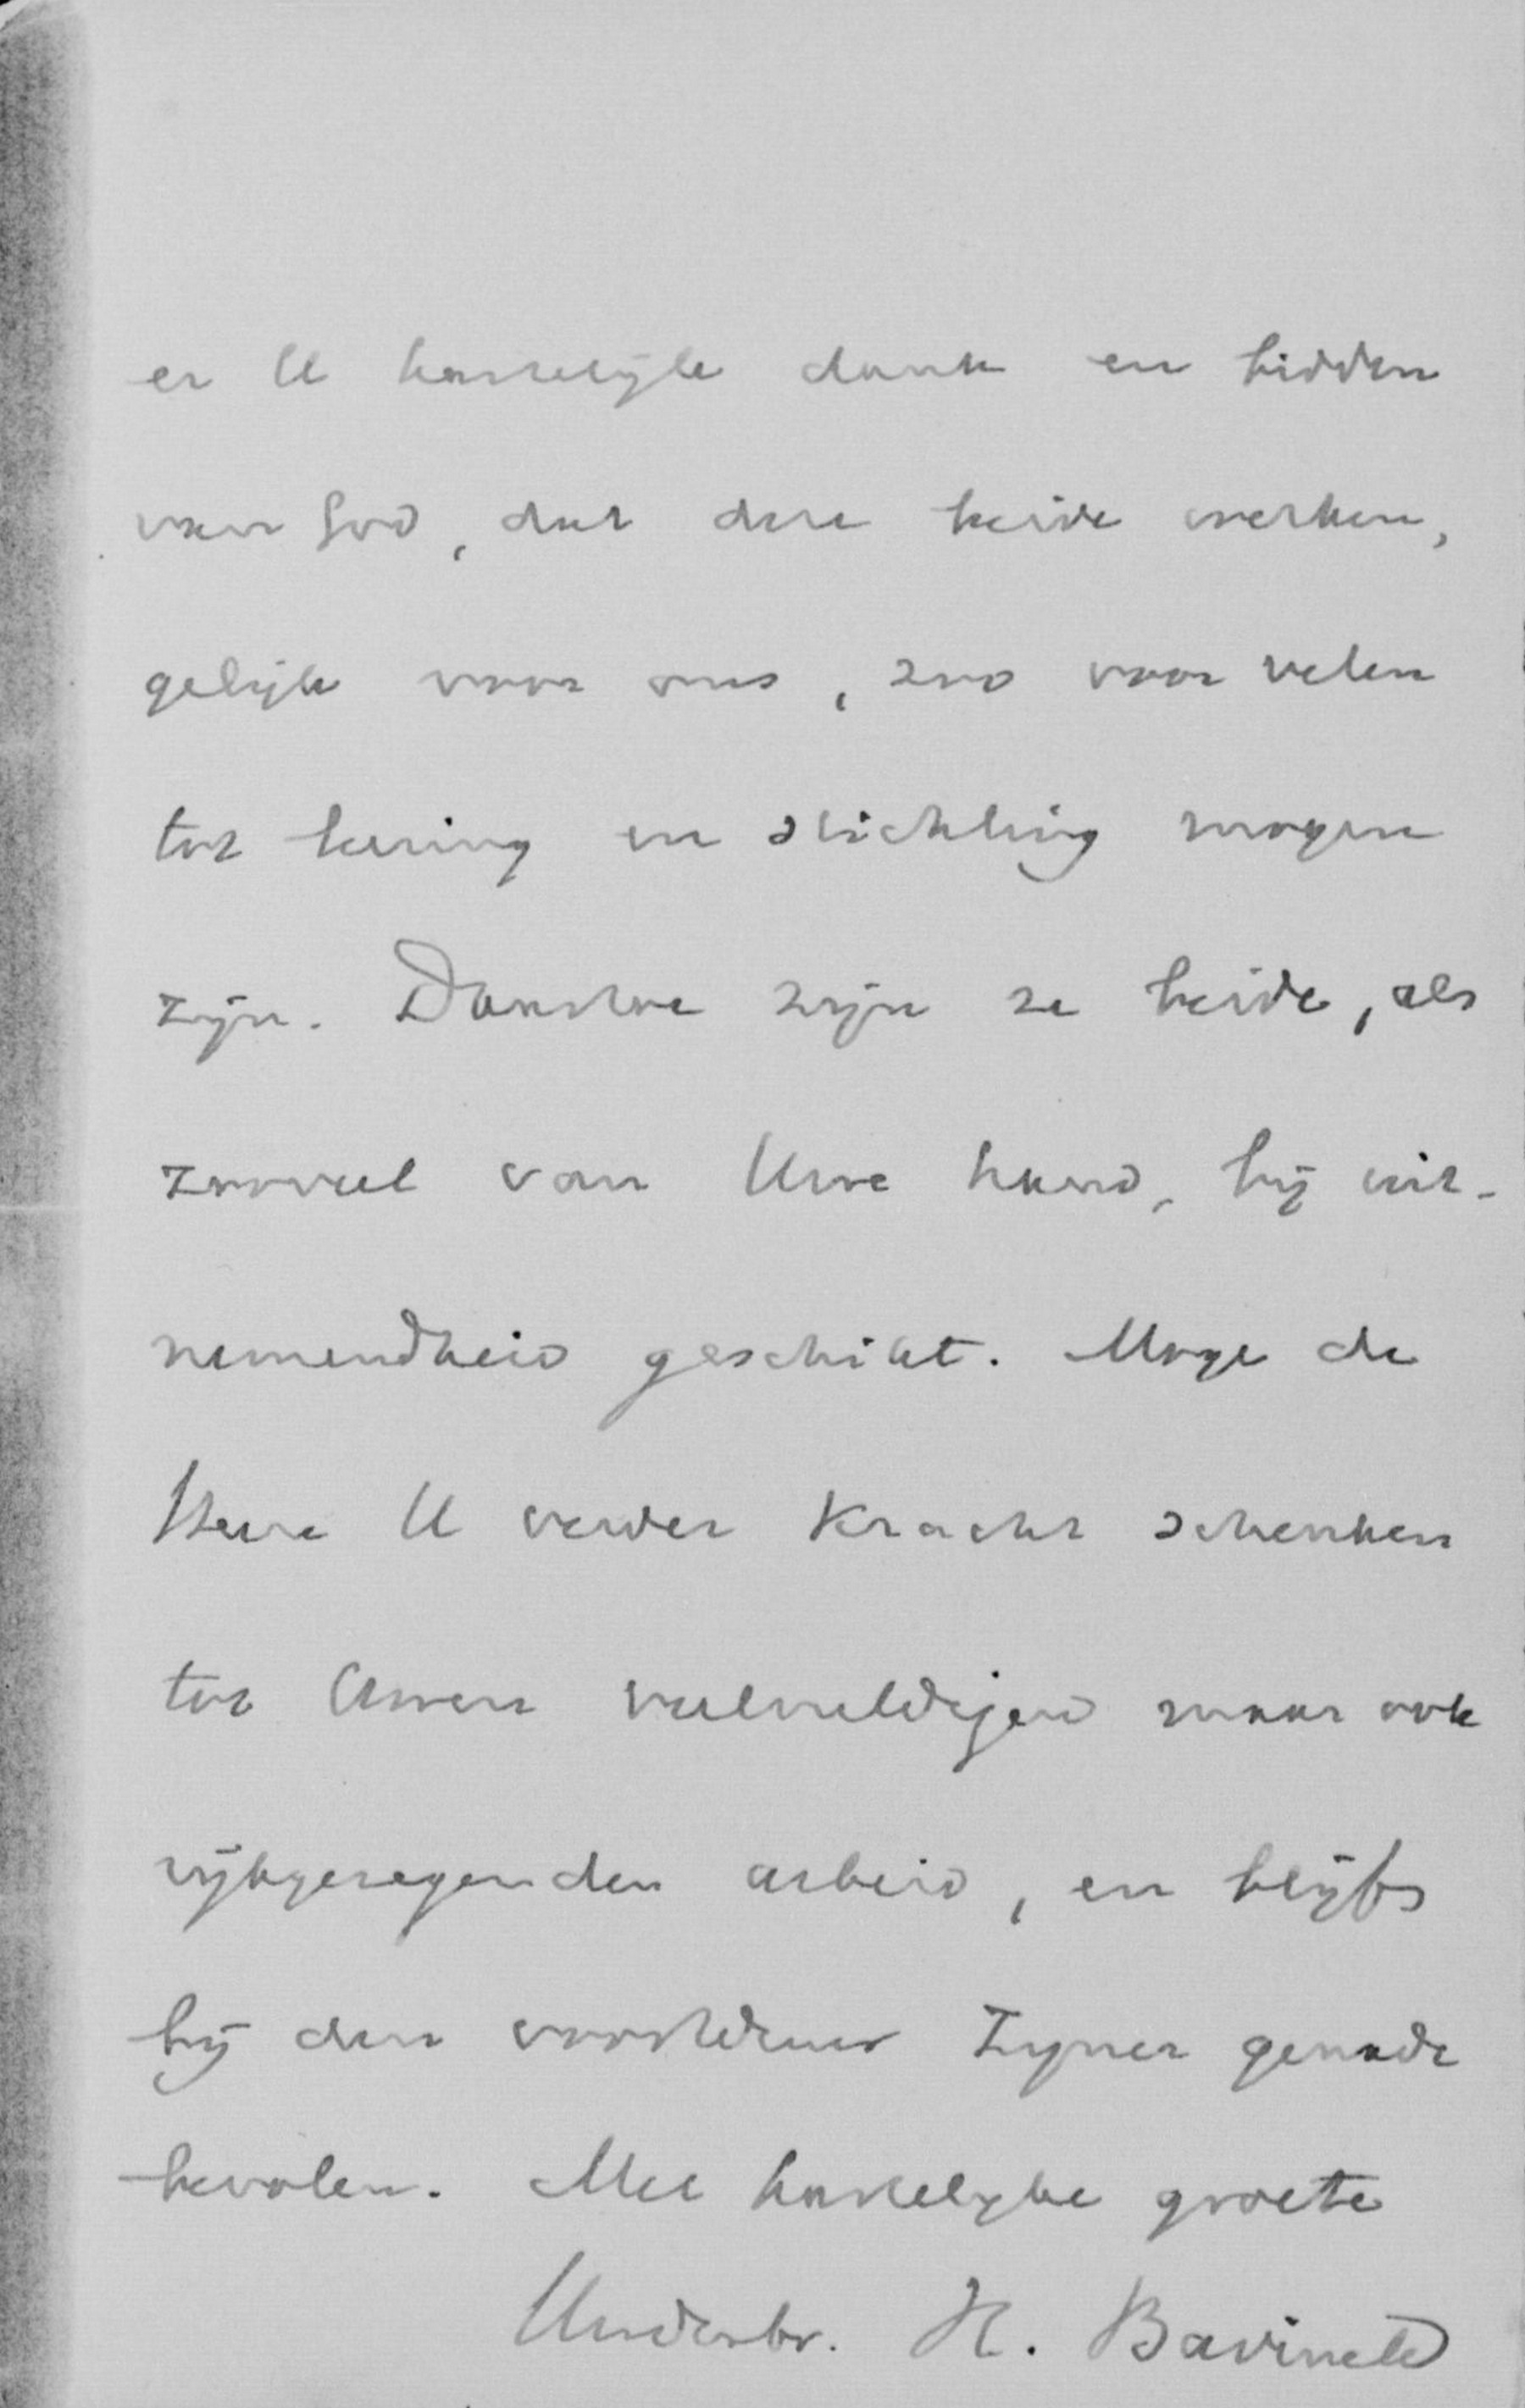 er U hartelijk dank en bidden
van God, dat deze beide werken,
gelijk voor ons, zoo voor velen
tot leering en stichting mogen
zijn. Daartoe zijn ze beide, als
zooveel van Uwe hand, bij uit-
nemendheid geschikt. Moge de
Heere U verder kracht schenken
tot Uwen veelvuldigen maar ook
rijkgezegenden arbeid, en blijf
bij den voortduur Zijner genade
bevolen. Met hartelijke groete
Uwdwbr. H. Bavinck